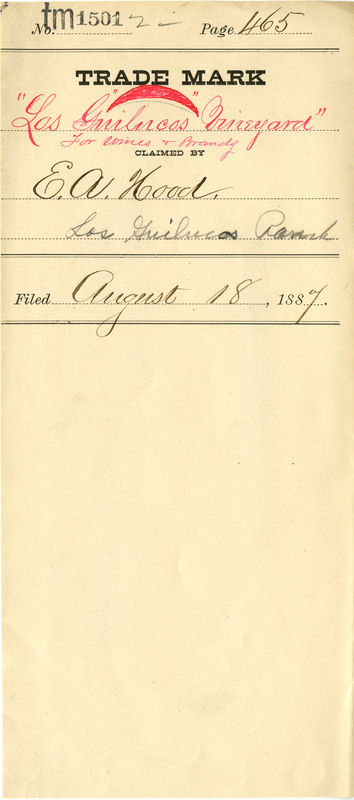 No. tm 1501 2 Page 465
TRADE MARK
"Los Guilucos" Vineyard"
For Wines & Brandy
CLAIMED BY
E. A. Hood.
Los Guilucos Ranch
Filed August 18, 1887.